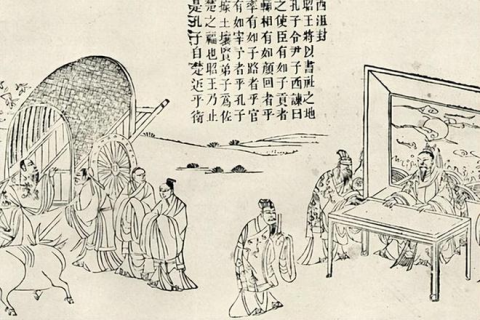 西沮封
昭王將以書社之地
孔子令尹子西諫曰
之使臣有如子貢者
輔相有如顏回者乎
率有如子路者乎官
有如宰予者乎孔子
據土壤賢弟子爲佐
楚之福也昭王乃止
是孔子自楚返乎衛